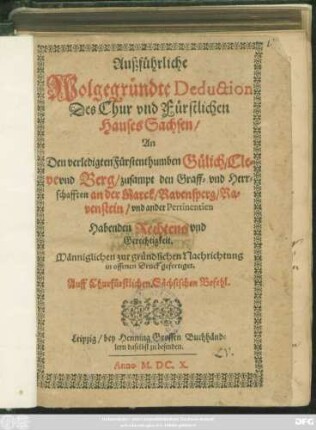 Außführliche
Wolgegründte Deduction
Des Chur vnd Fürstlichen
Hauses Sachsen/
An
Den verledigten Fürstenthumben Gülich/Cle-
ve vnd Berg/zusampt den Graff- vnd Herr-
schafften an der Marck/Ravensperg/Ra-
venstein/vnd ander Pertinentien
Habenden Rechtens vnd
Gerechtigkeit.
Männiglichen zur gründlichen Nachrichtung
in offenen Druck gefertiget.
Auff Churfürstlichen Sächsischen Befehl.
Leipzig/bey Henning Grossen Buchhänd-
lern daselbst zu befinden.
Anno M. DC. X.